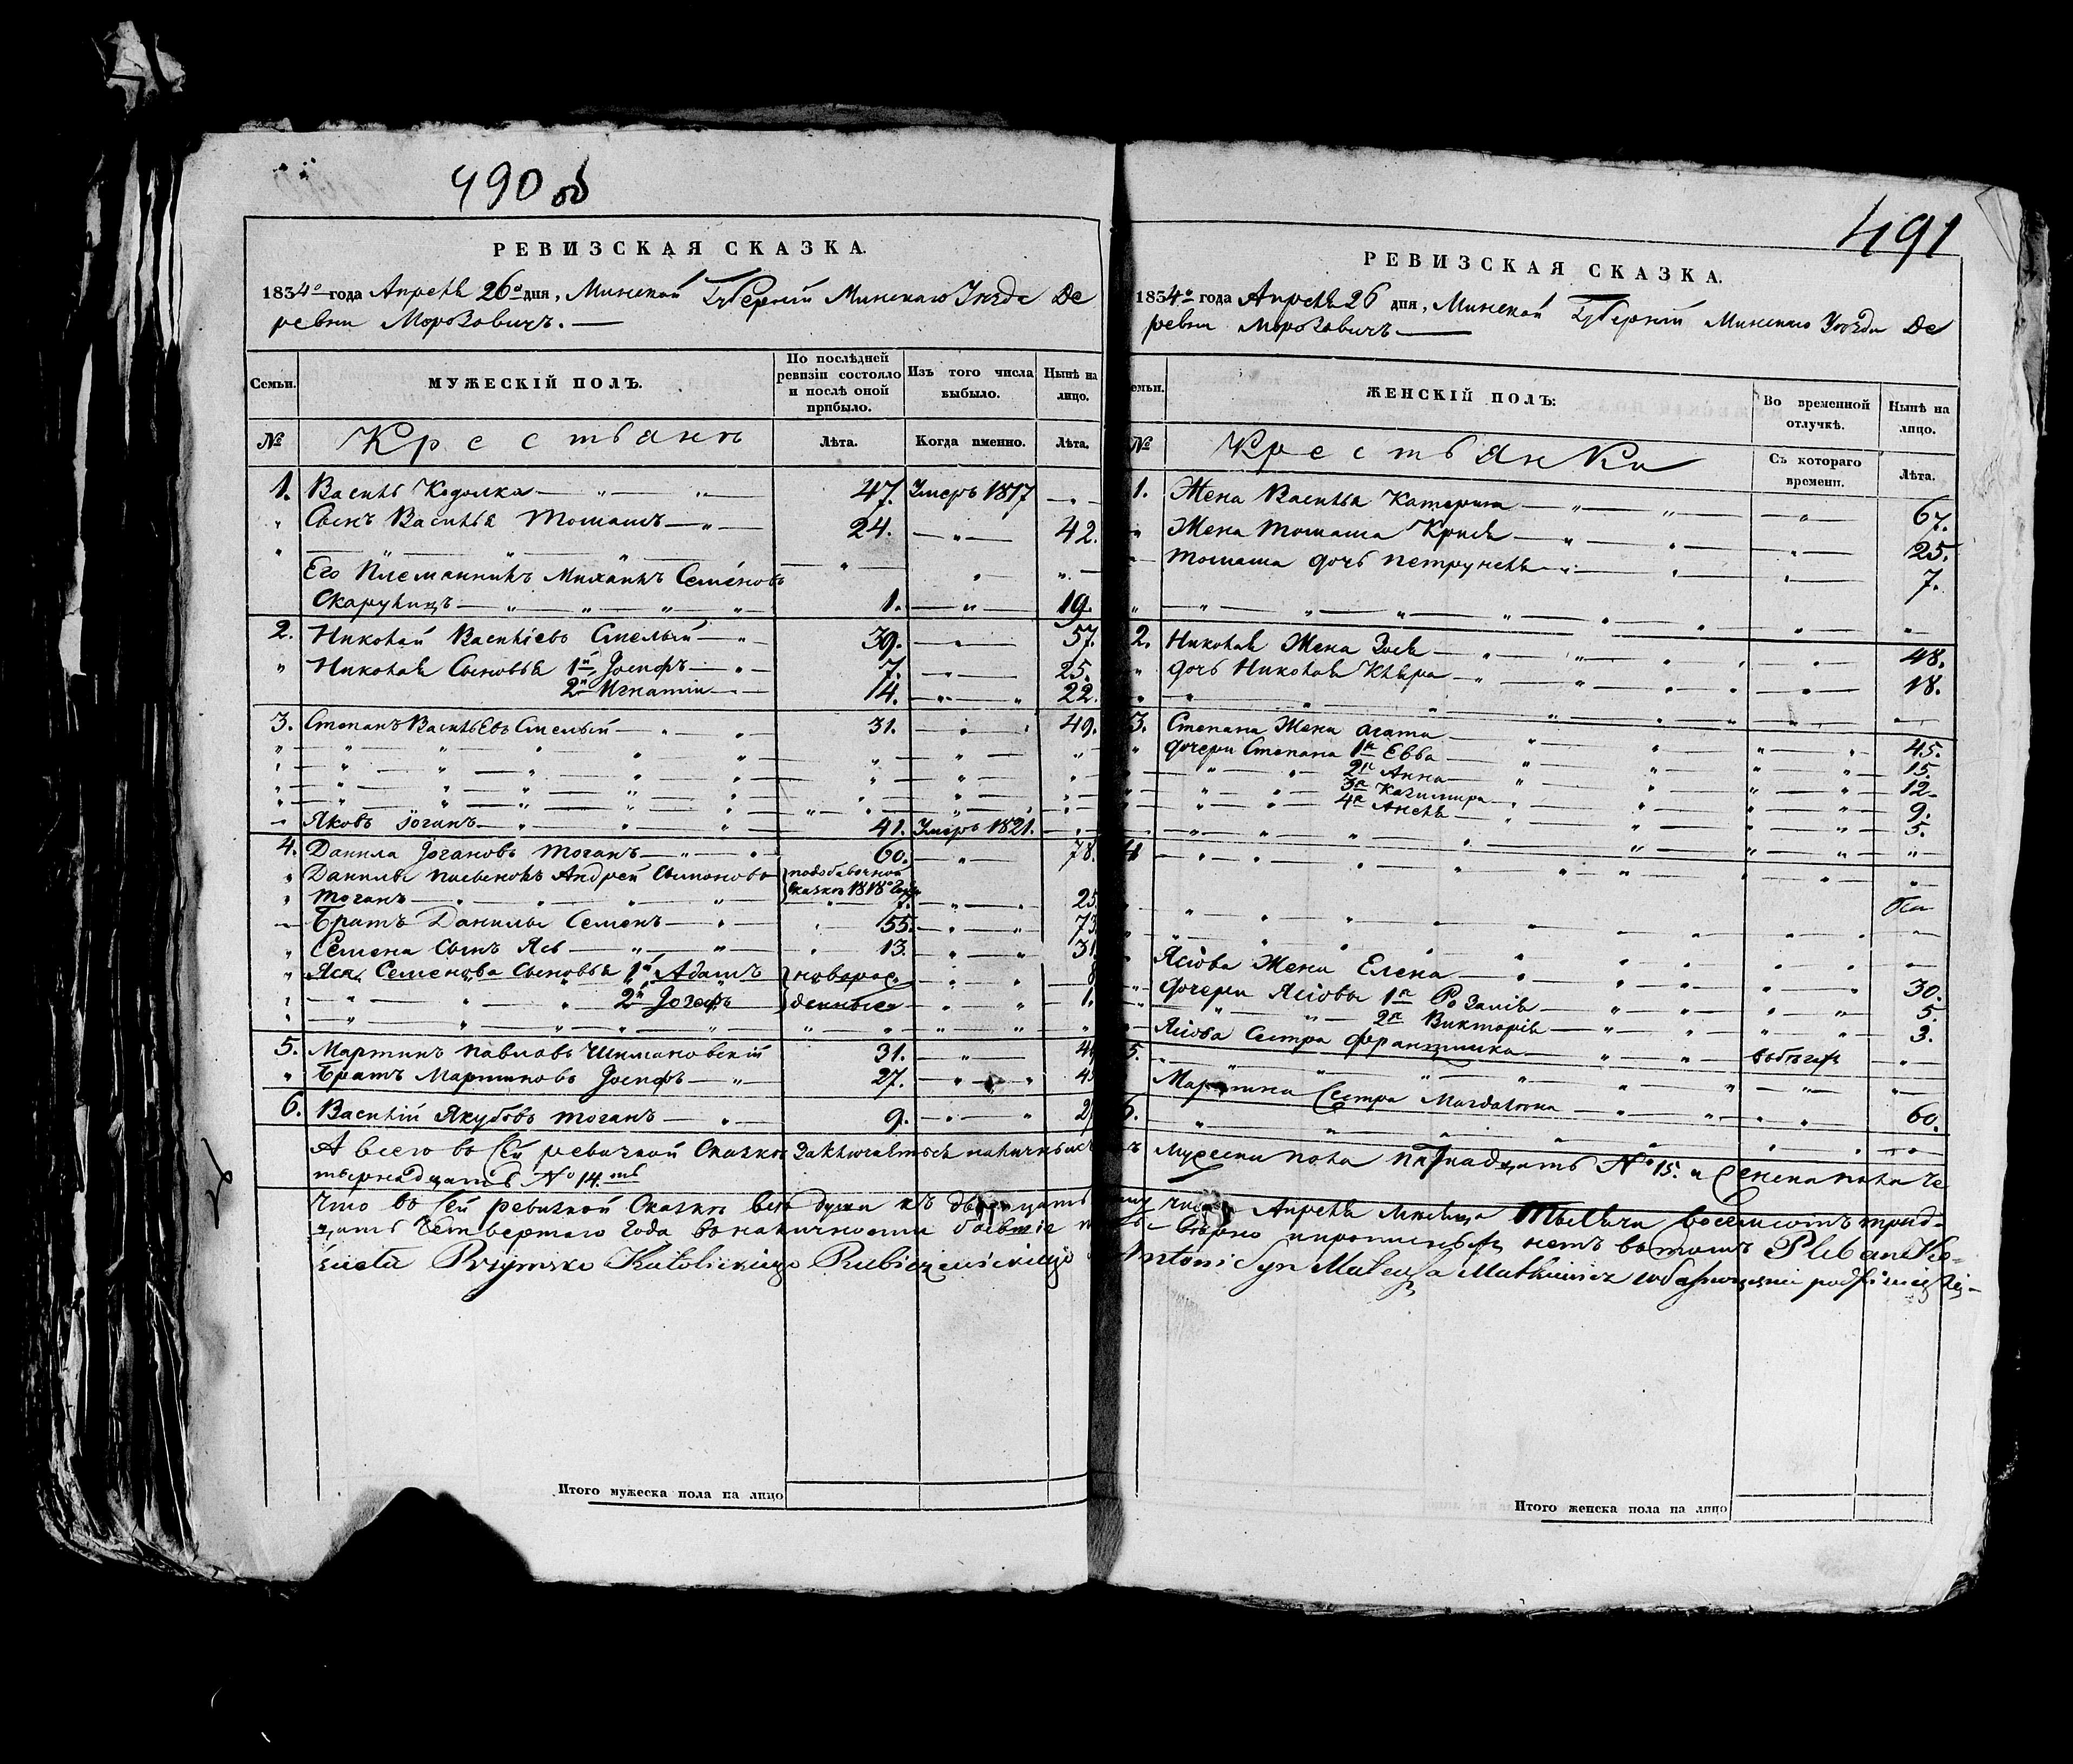 490 об
РЕВИЗСКАЯ СКАЗКА.
1834го года Апреля 26го дня, Минской Губерніи Минскаго Уезда Де
ревни Морозовичъ. —
Семьи.
МУЖЕСКІЙ ПОЛЪ.
По послѣдней ревизіи состояло и послѣ оной прибыло.
Изъ того числа выбыло.
Нынѣ на лицо.
№
Крестьянъ
Лѣта.
Когда именно.
Лѣта.
1. Василь — 47. Умеръ 1817 —
Сынъ Василья Томашъ — 24. — 42.
Его Племянникъ Михаилъ Семёновъ
Скаруницъ — 1. — 19.
2. Николай Василіевъ Смелый — 39. — 57.
Николая Сыновья 1й Іосифъ — 7. — 25.
2й Игнатіи — 14. — 22.
3. Степанъ Васильевъ Смелый — 31. — 49.
Яковъ — 41. Умеръ 1821. —
4. Данила Тоганъ — 60. — 78.
Данилы Племеникъ Андрей Сымоновъ
подобавочной
сказке 1818го Года
Тоганъ — 7. — 25.
Братъ Данилы Семенъ — 55. — 73
Семена Сынъ Ясь — 13. — 31
Яся Семенова Сыновья 1й Адамъ новорож 8
2й Іозефъ денные 1.
5. Мартинъ Павловъ Шимановскій 31. — 4
Братъ Мартиновъ Іосифъ — 27. — 4
6. Василій Якубовъ Тоганъ — 9. — 2
А всего во сей ревизкой Сказке Заключается наличныхъ
тырнадцать № 14.ть
Что въ сей ревизкой Сказке все души къ двадцать
цать Четвертого Года въ наличности бывшіе
Rzymsko Katolickiego Rubieżewickiego
Итого мужеска пола на лицо
491
РЕВИЗСКАЯ СКАЗКА.
1834го года Апреля 26 дня, Минской Губерніи Минскаго Уезда Де
ревни Морозовичъ —
емьи.
ЖЕНСКІЙ ПОЛЪ:
Во временной отлучкѣ.
Нынѣ на лицо.
№
Крестьянки
Съ котораго времени.
Лѣта.
1. Жена Василья Катерина — 67.
Жена Томаша Крися — 25.
Томаша дочь Петрунеля — 7.
2. Николая Жена Зося — 48.
дочь Николая Кляра — 18.
3. Степана Жена Агата — 45.
дочери Степана 1я Евва — 15.
2я Анна — 12.
3я Казимира — 9.
4я Анеля — 5.
4
Ясіова Жена Елена — 30.
дочери Ясіовы 1я Розалія — 5.
2я Викторія — 3.
Ясіова Сестра Францишка — выбегах
5.
Мартина Сестра Магдалена — 60.
6.
ъ Мужеска пола пятнадцать № 15. и Женска пола че
му числу Апреля месяца тысяча восемсотъ трид-
нетъ въ томъ Pleban
Antoni Syn Mateusza Matkiewicz
Итого женска пола на лицо